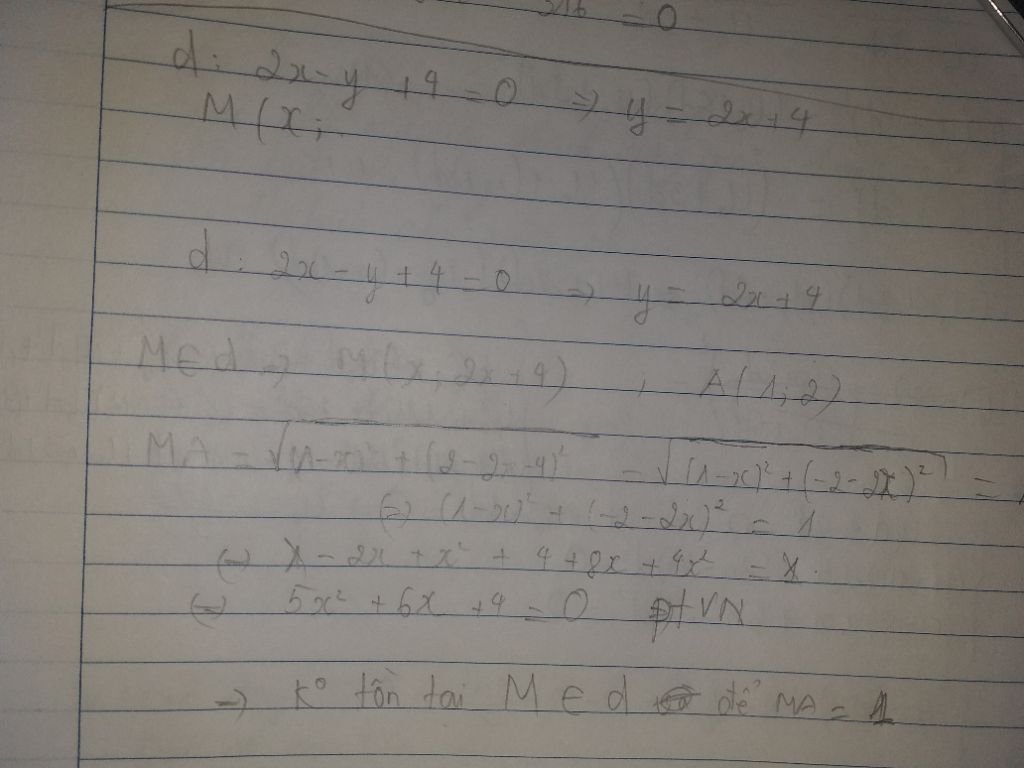 = 0
d: 2x - y + 4 = 0 => y = 2x + 4
M (x;
d: 2x - y + 4 = 0 => y = 2x + 4
M ∈ d => M(x; 2x+4) , A(1; 2)
MA = √((1-x)² + (2-2x-4)²) = √((1-x)² + (-2-2x)²) = 1
(=) (1-x)² + (-2-2x)² = 1
(=) 1 - 2x + x² + 4 + 8x + 4x² = 1.
(=) 5x² + 6x + 4 = 0 ptVN
=> K° tồn tai M ∈ d để MA = 1